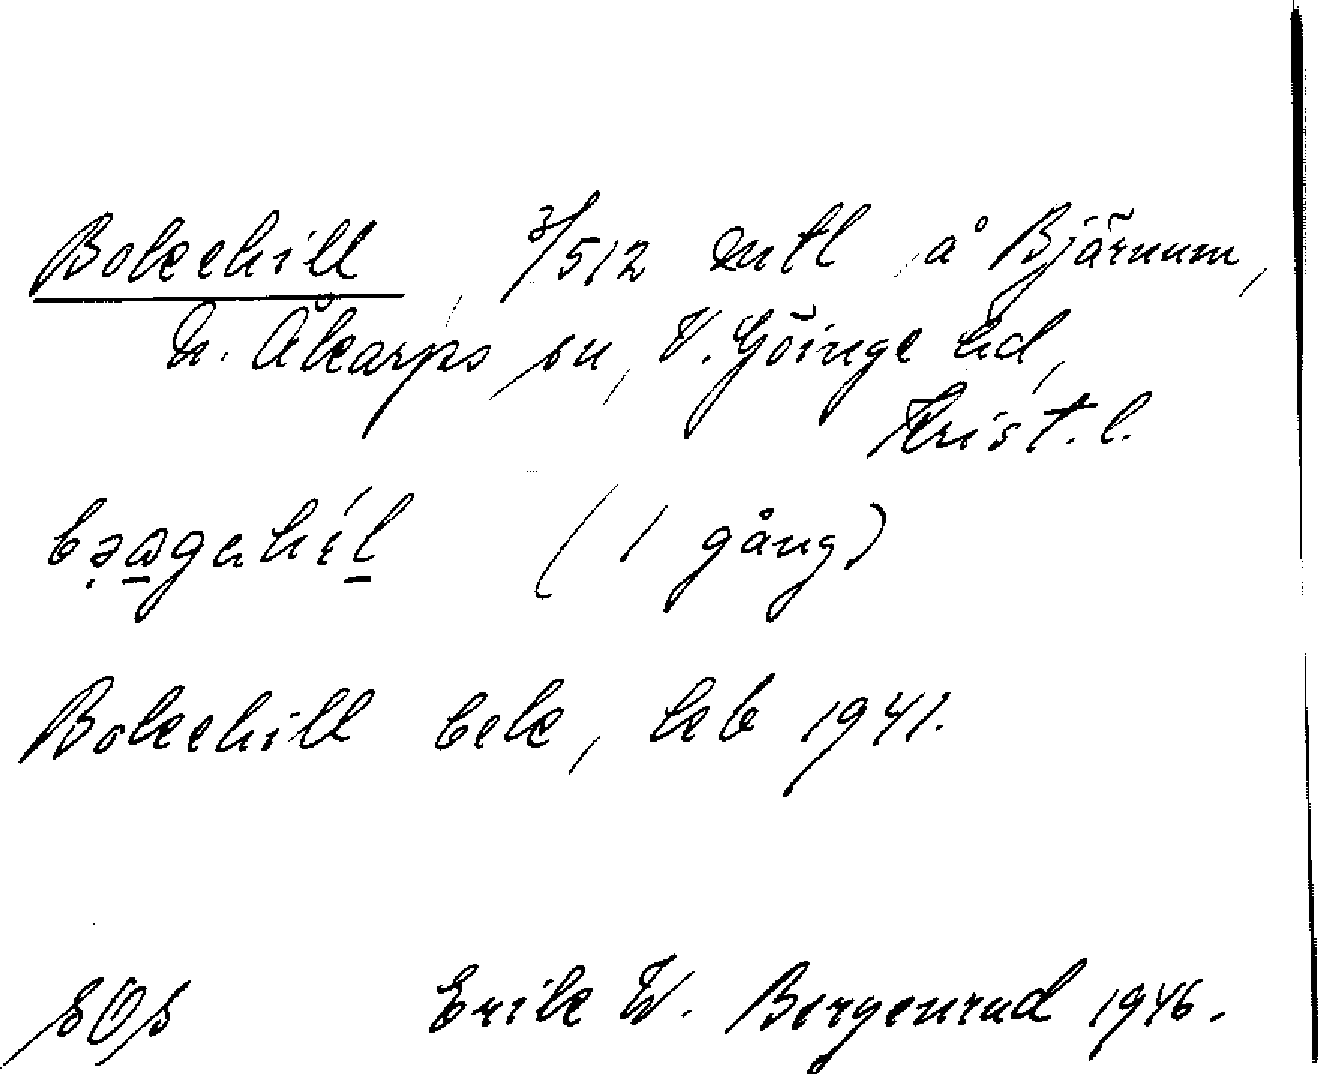 Bokehill, 3/512 mtl å Bjärnum,
N. Åkarps sn, V. Göinge hd,
Krist. l.
(1 gång)
Bokehill bek, kb 1941.
SOS Erik W. Bergenrud 1946.